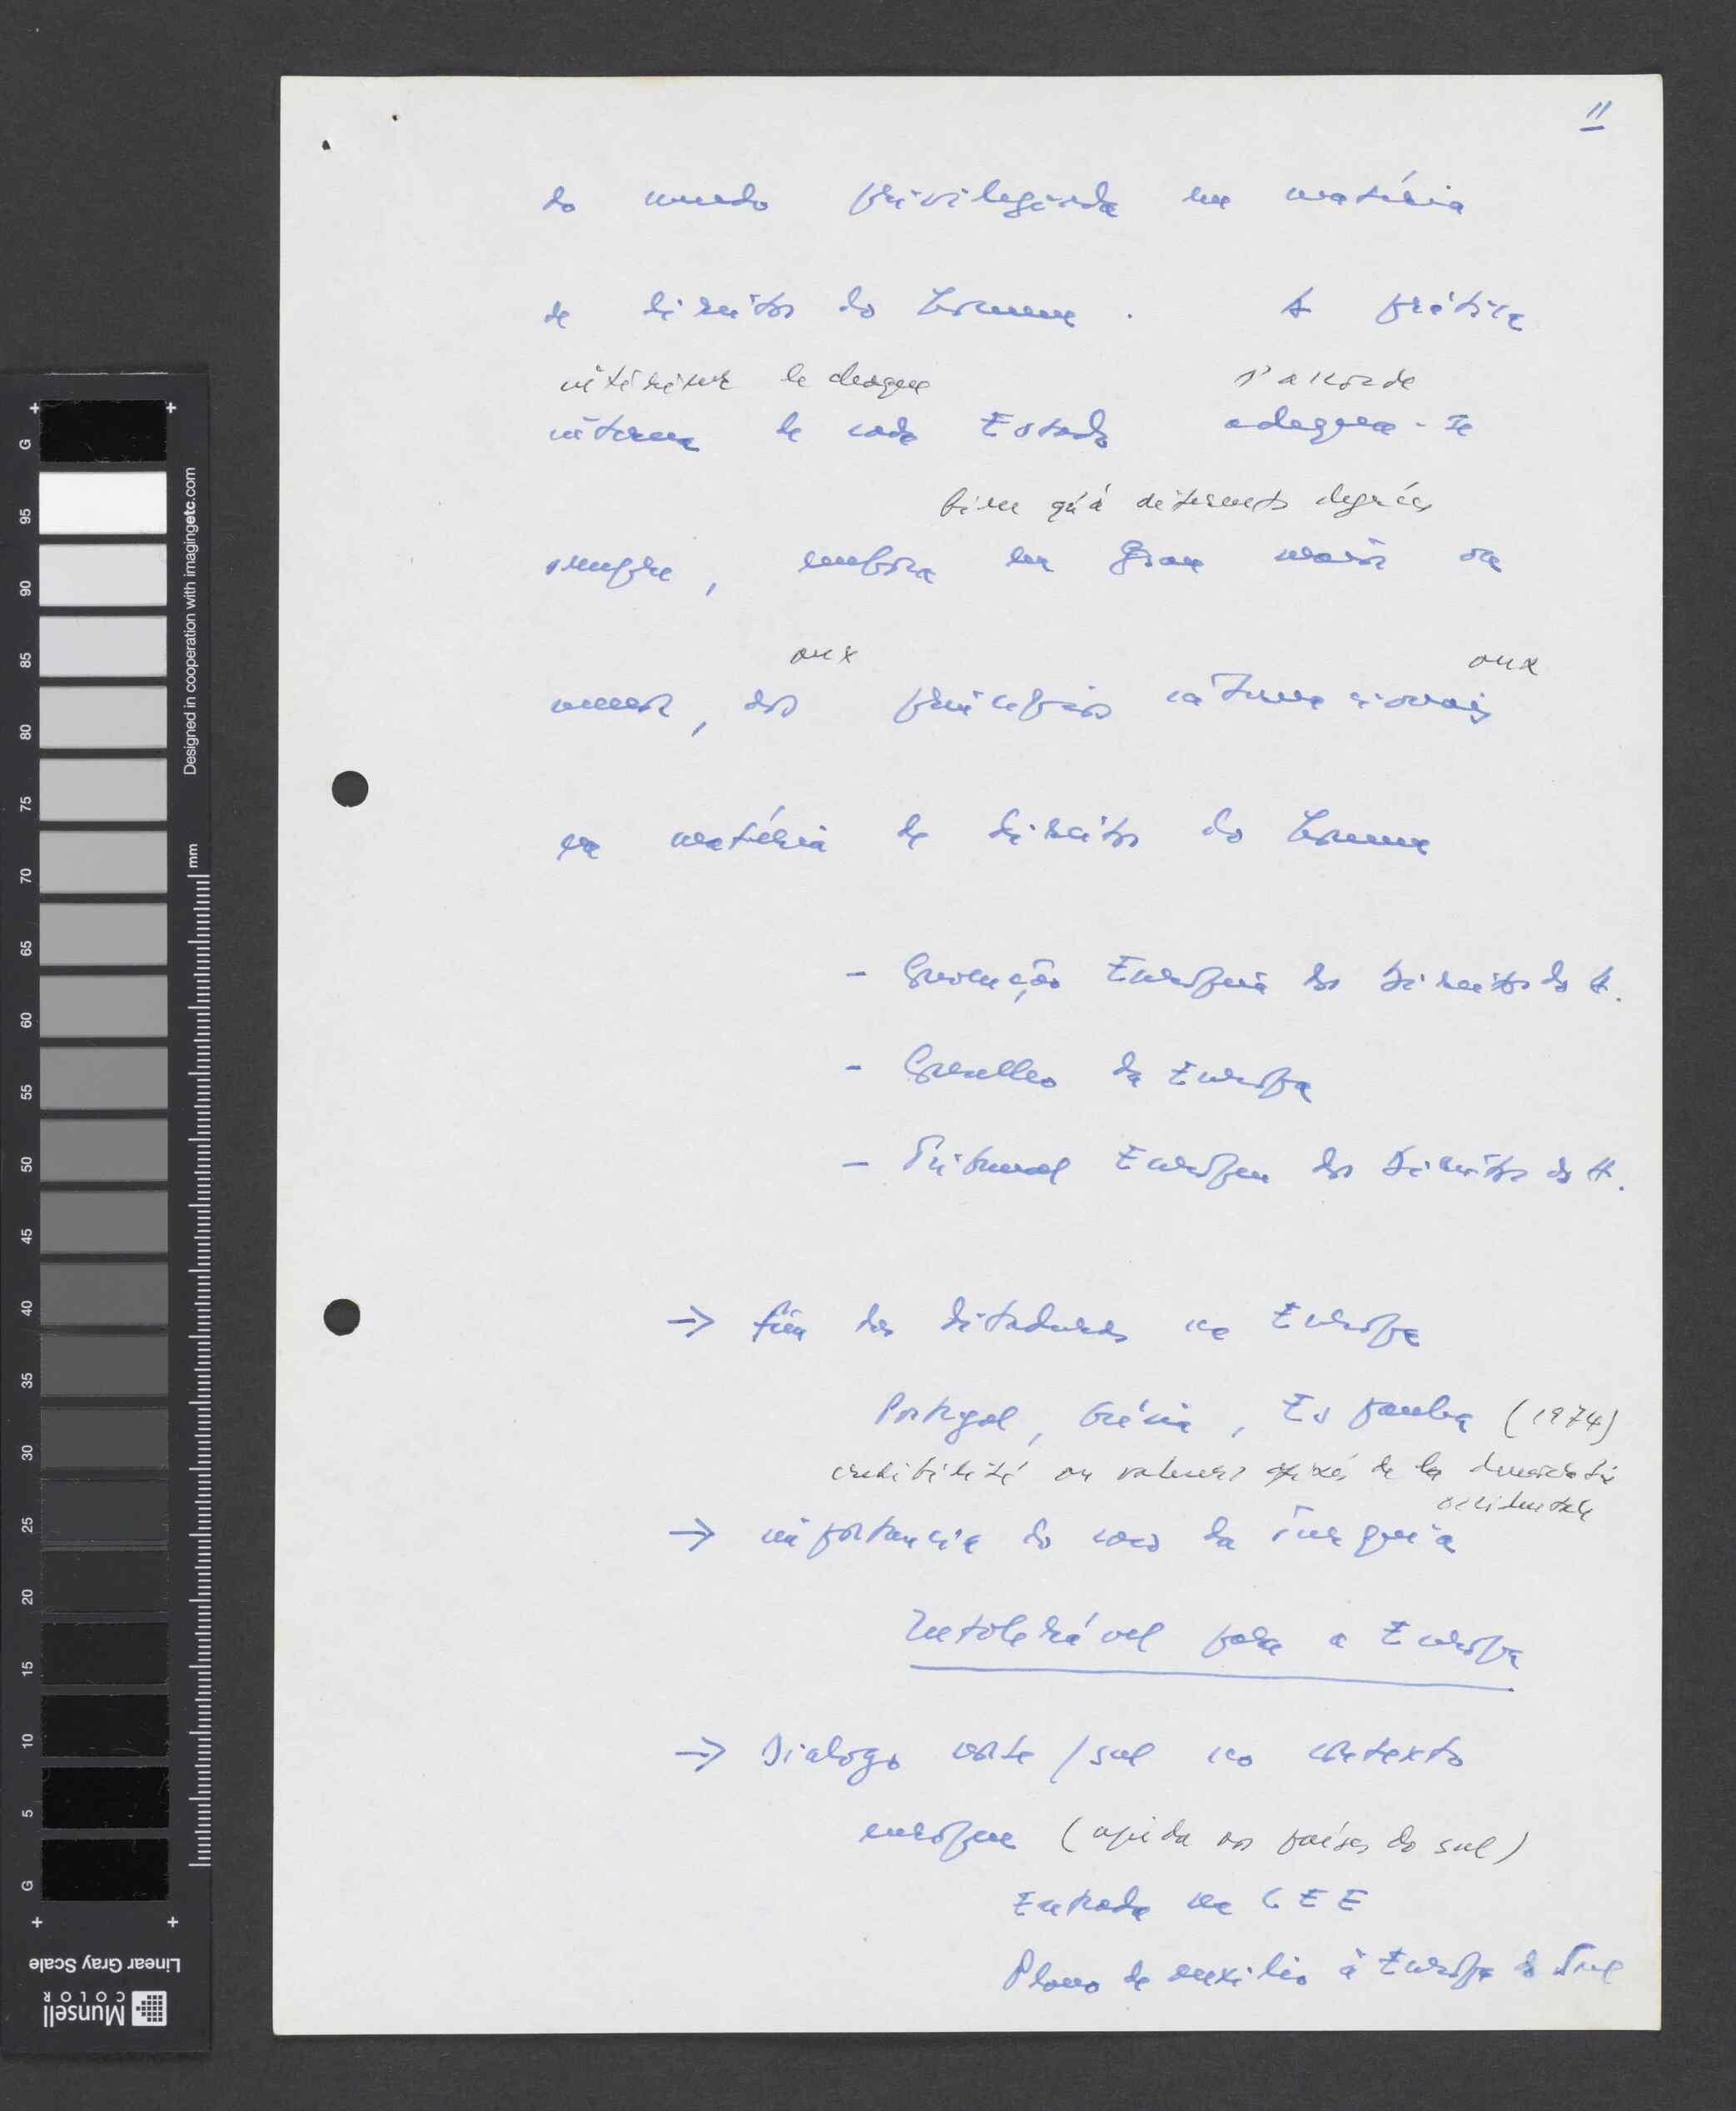 11
do mundo privilegiada em matéria
de direitos do homem. A prática
intérieure de chaque s'accorde
interna de cada Estado adequa-se
bien qu'à différents degrés
sempre, embora em grau maior ou
aux aux
menor, aos princípios internacionais
em matéria de direitos do homem
- Convenção Europeia dos Direitos do H.
- Conselho da Europa
- Tribunal Europeu dos Direitos do H.
→ fim das ditaduras na Europa
Portugal, Grécia, Espanha (1974)
crédibilité aux valeurs de la démocratie
occidentale
→ importancia do caso da Turquia
Intolerável para a Europa
→ Dialogo norte/sul no contexto
europeu (ajuda aos países do sul)
Entrada na CEE
Plano de auxilio à Europa do Sul
G
95
90
85
80
75
70
65
60
55
50
45
40
35
30
25
20
15
10
5
G
Designed in cooperation with imagingetc.com
mm
Linear Gray Scale
Munsell
COLOR